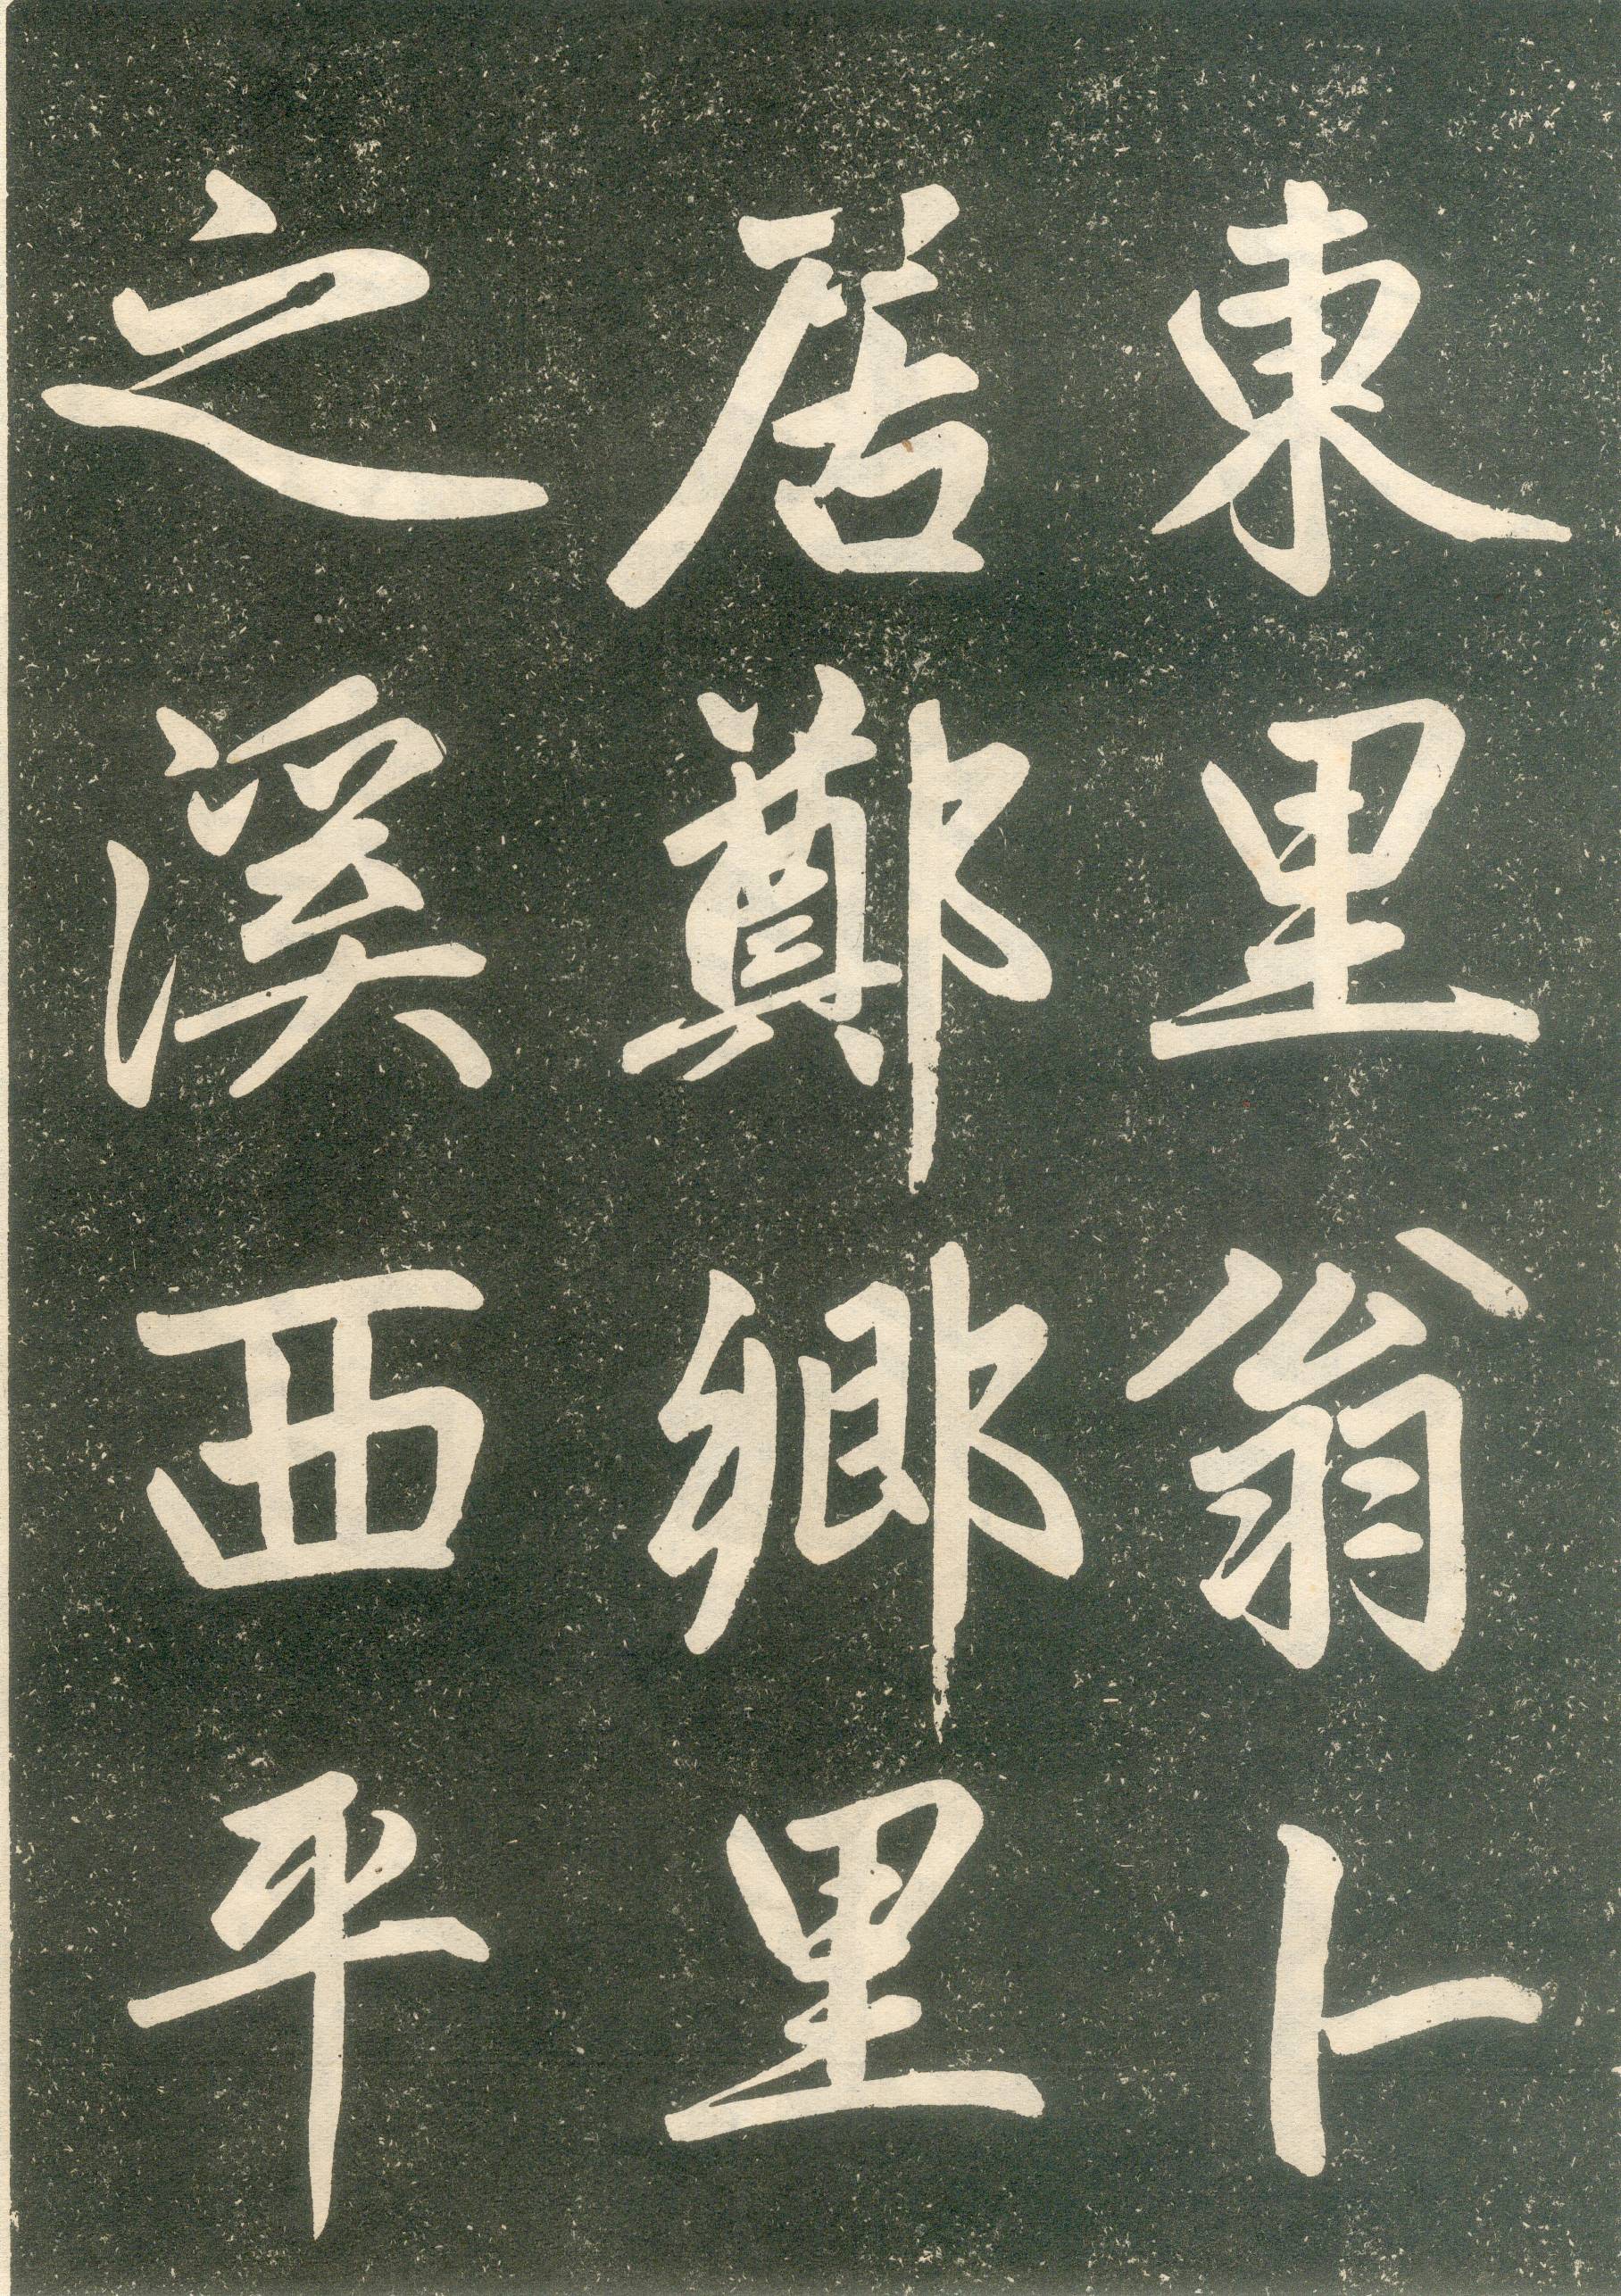 東里翁卜
居鄭鄉里
之溪西平